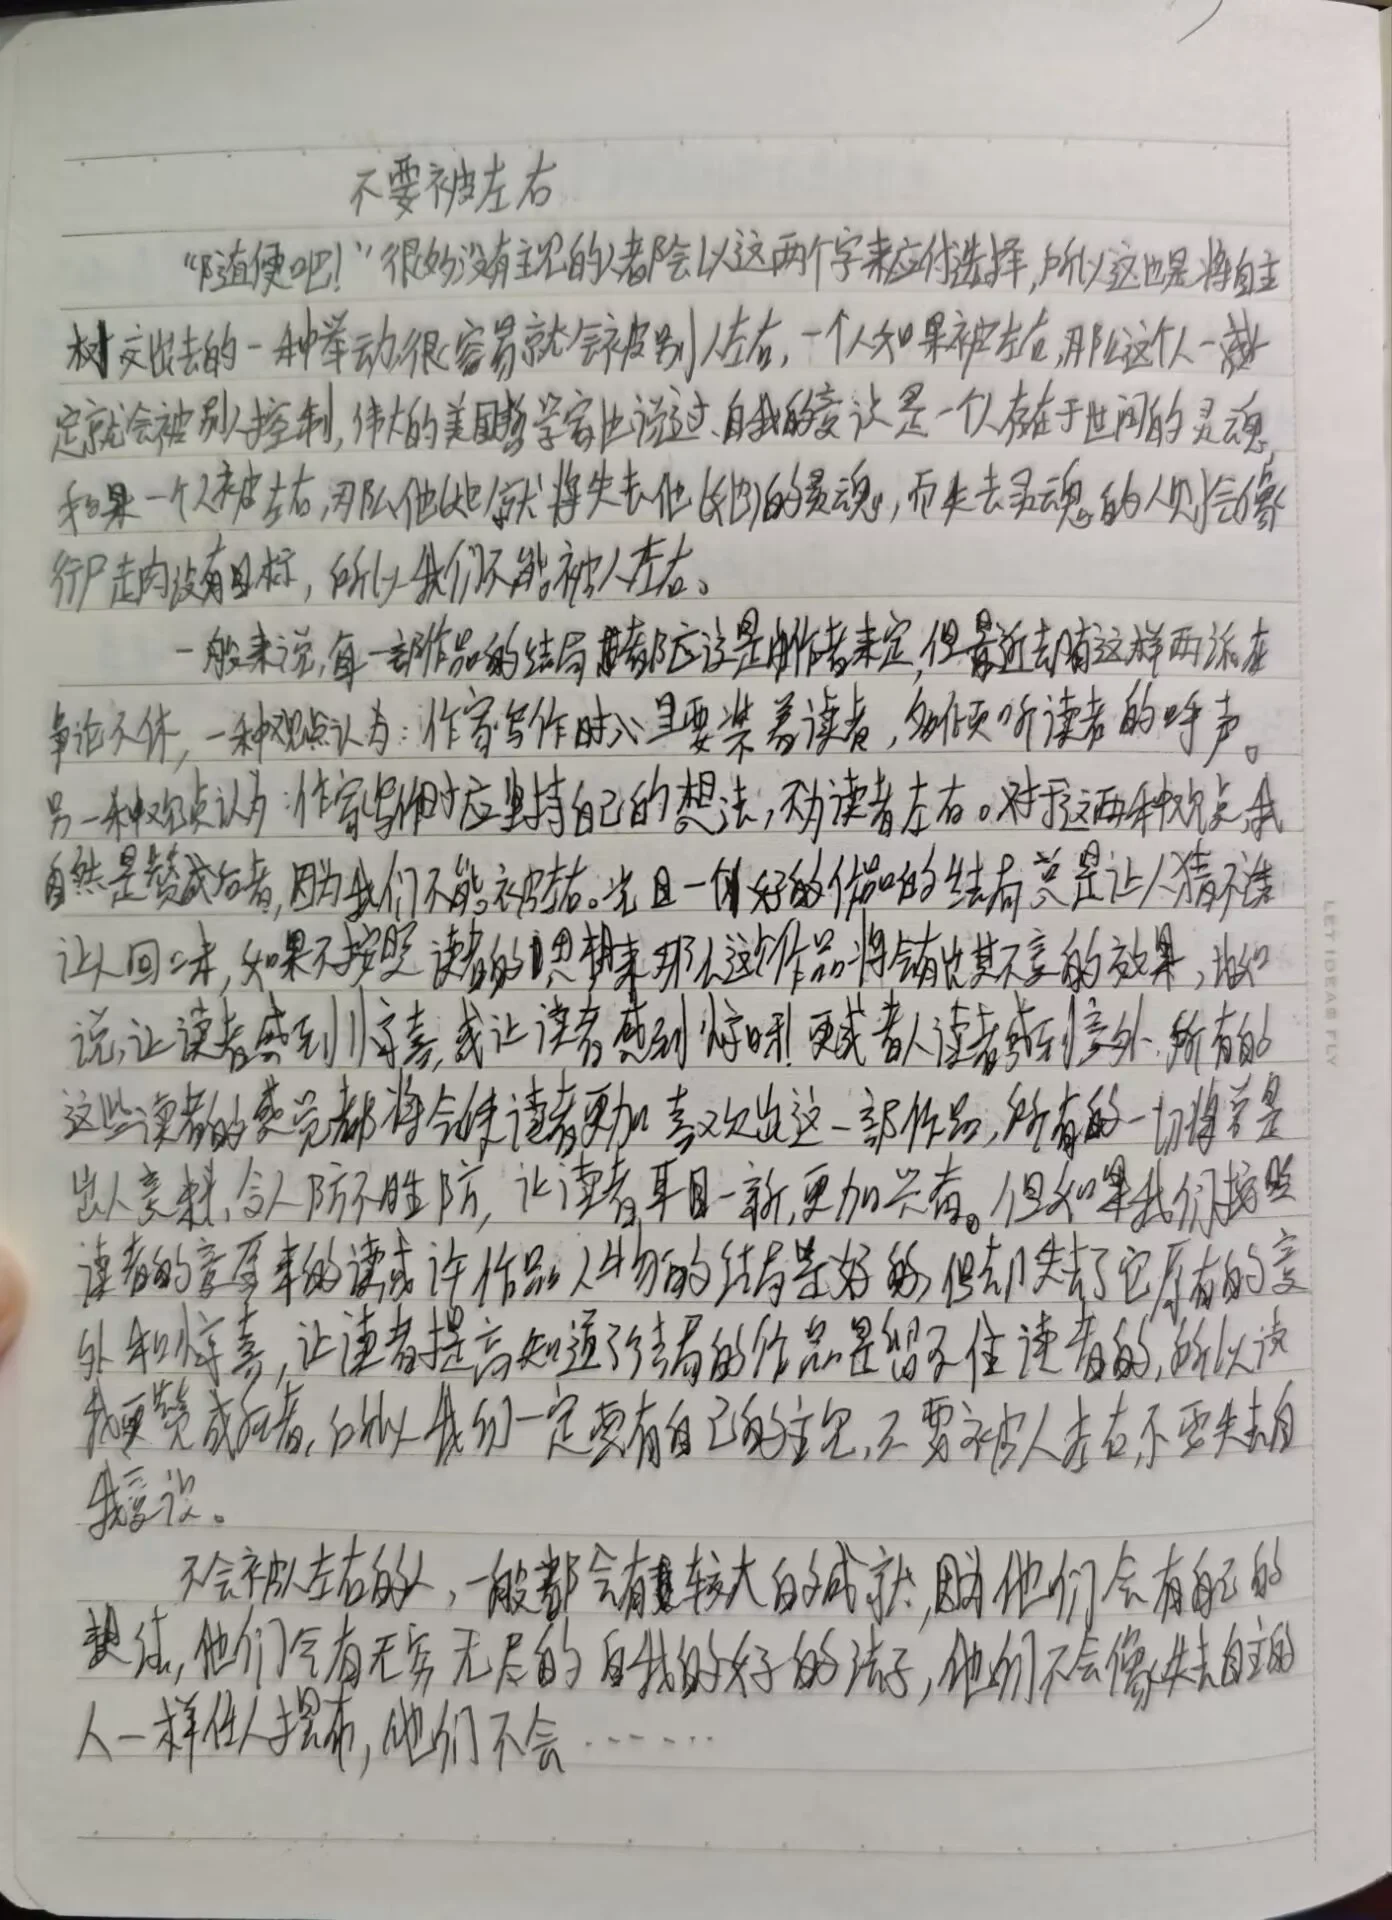 不要被左右
“随便吧！”很多没有主见的人都会以这两个字来应付选择，所以这也是将自主
权交出去的一种举动很容易就会被别人左右，一个人如果被左右，那么这个人一
定就会被别人控制，伟大的美国哲学家也说过、自我的意识是一个人存在于世间的灵魂，
如果一个人被左右，那么他（她）就将失去他（她）的灵魂，而失去灵魂的人则会像
行尸走肉没有目标，所以我们不能被人左右。
一般来说，每一部作品的结局都应该是由作者来定，但最近却有这样两派在
争论不休，一种观点认为：作家写作时心里要装着读者，多倾听读者的呼声。
另一种观点认为：作家写作时应坚持自己的想法，不为读者左右。对于这两种观点，我
自然是赞成后者，因为我们不能被左右。光且一个好的作品的结局总是让人猜不透
让人回味，如果不按照读者的思想来那么这个作品将会有出其不意的效果，比如
说，让读者感到惊喜，或让读者感到惊呀！更或者人读者感到意外、所有的
这些读者的感觉都将会使读者更加喜欢出这一部作品，所有的一切将总是
出人意料、令人防不胜防，让读者耳目一新，更加兴奋。但如果我们按照
读者的意愿来的读或许作品人物的结局是好的，但却失去了它原有的意
外和惊喜，让读者提高知道了结局的作品是留不住读者的，所以说
我更赞成后者，所以我们一定要有自己的主见，不要被人左右，不要失去自
我意识。
不会被人左右的人，一般都会有较大的成就，因为他们会有自己的
想法，他们会有无穷无尽的自我的好的法子，他们不会像失去自主的
人一样任人摆布，他们不会……
LET IDEAS FLY